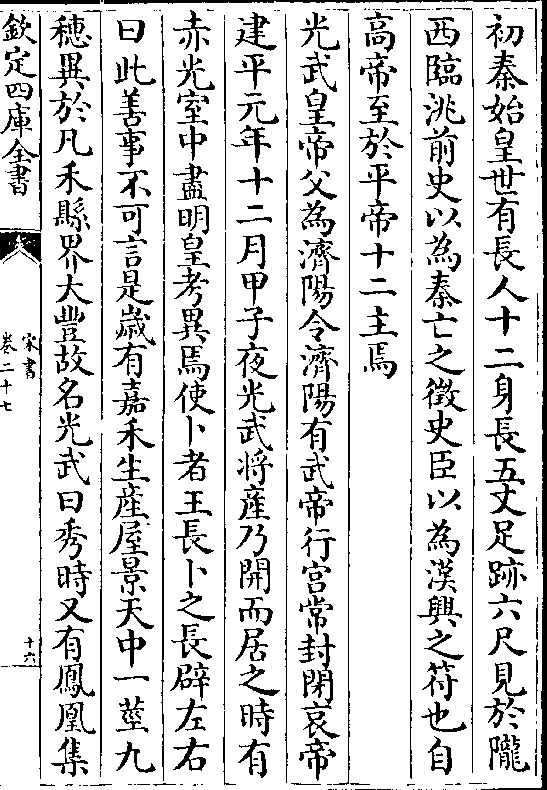 初秦始皇世有長人十二身長五丈足跡六尺見於隴
西臨洮前史以為秦亡之徵史臣以為漢興之符也自
高帝至於平帝十二主焉
光武皇帝父為濟陽令濟陽有武帝行宫常封閉哀帝
建平元年十二月甲子夜光武將產乃開而居之時有
赤光室中盡明皇考異焉使卜者王長卜之長辟左右
曰此善事不可言是歲有嘉禾生產屋景天中一莖九
穗異於凡禾縣界大豐故名光武曰秀時又有鳳凰集
欽定四庫全書
宋書
卷二十七
十六